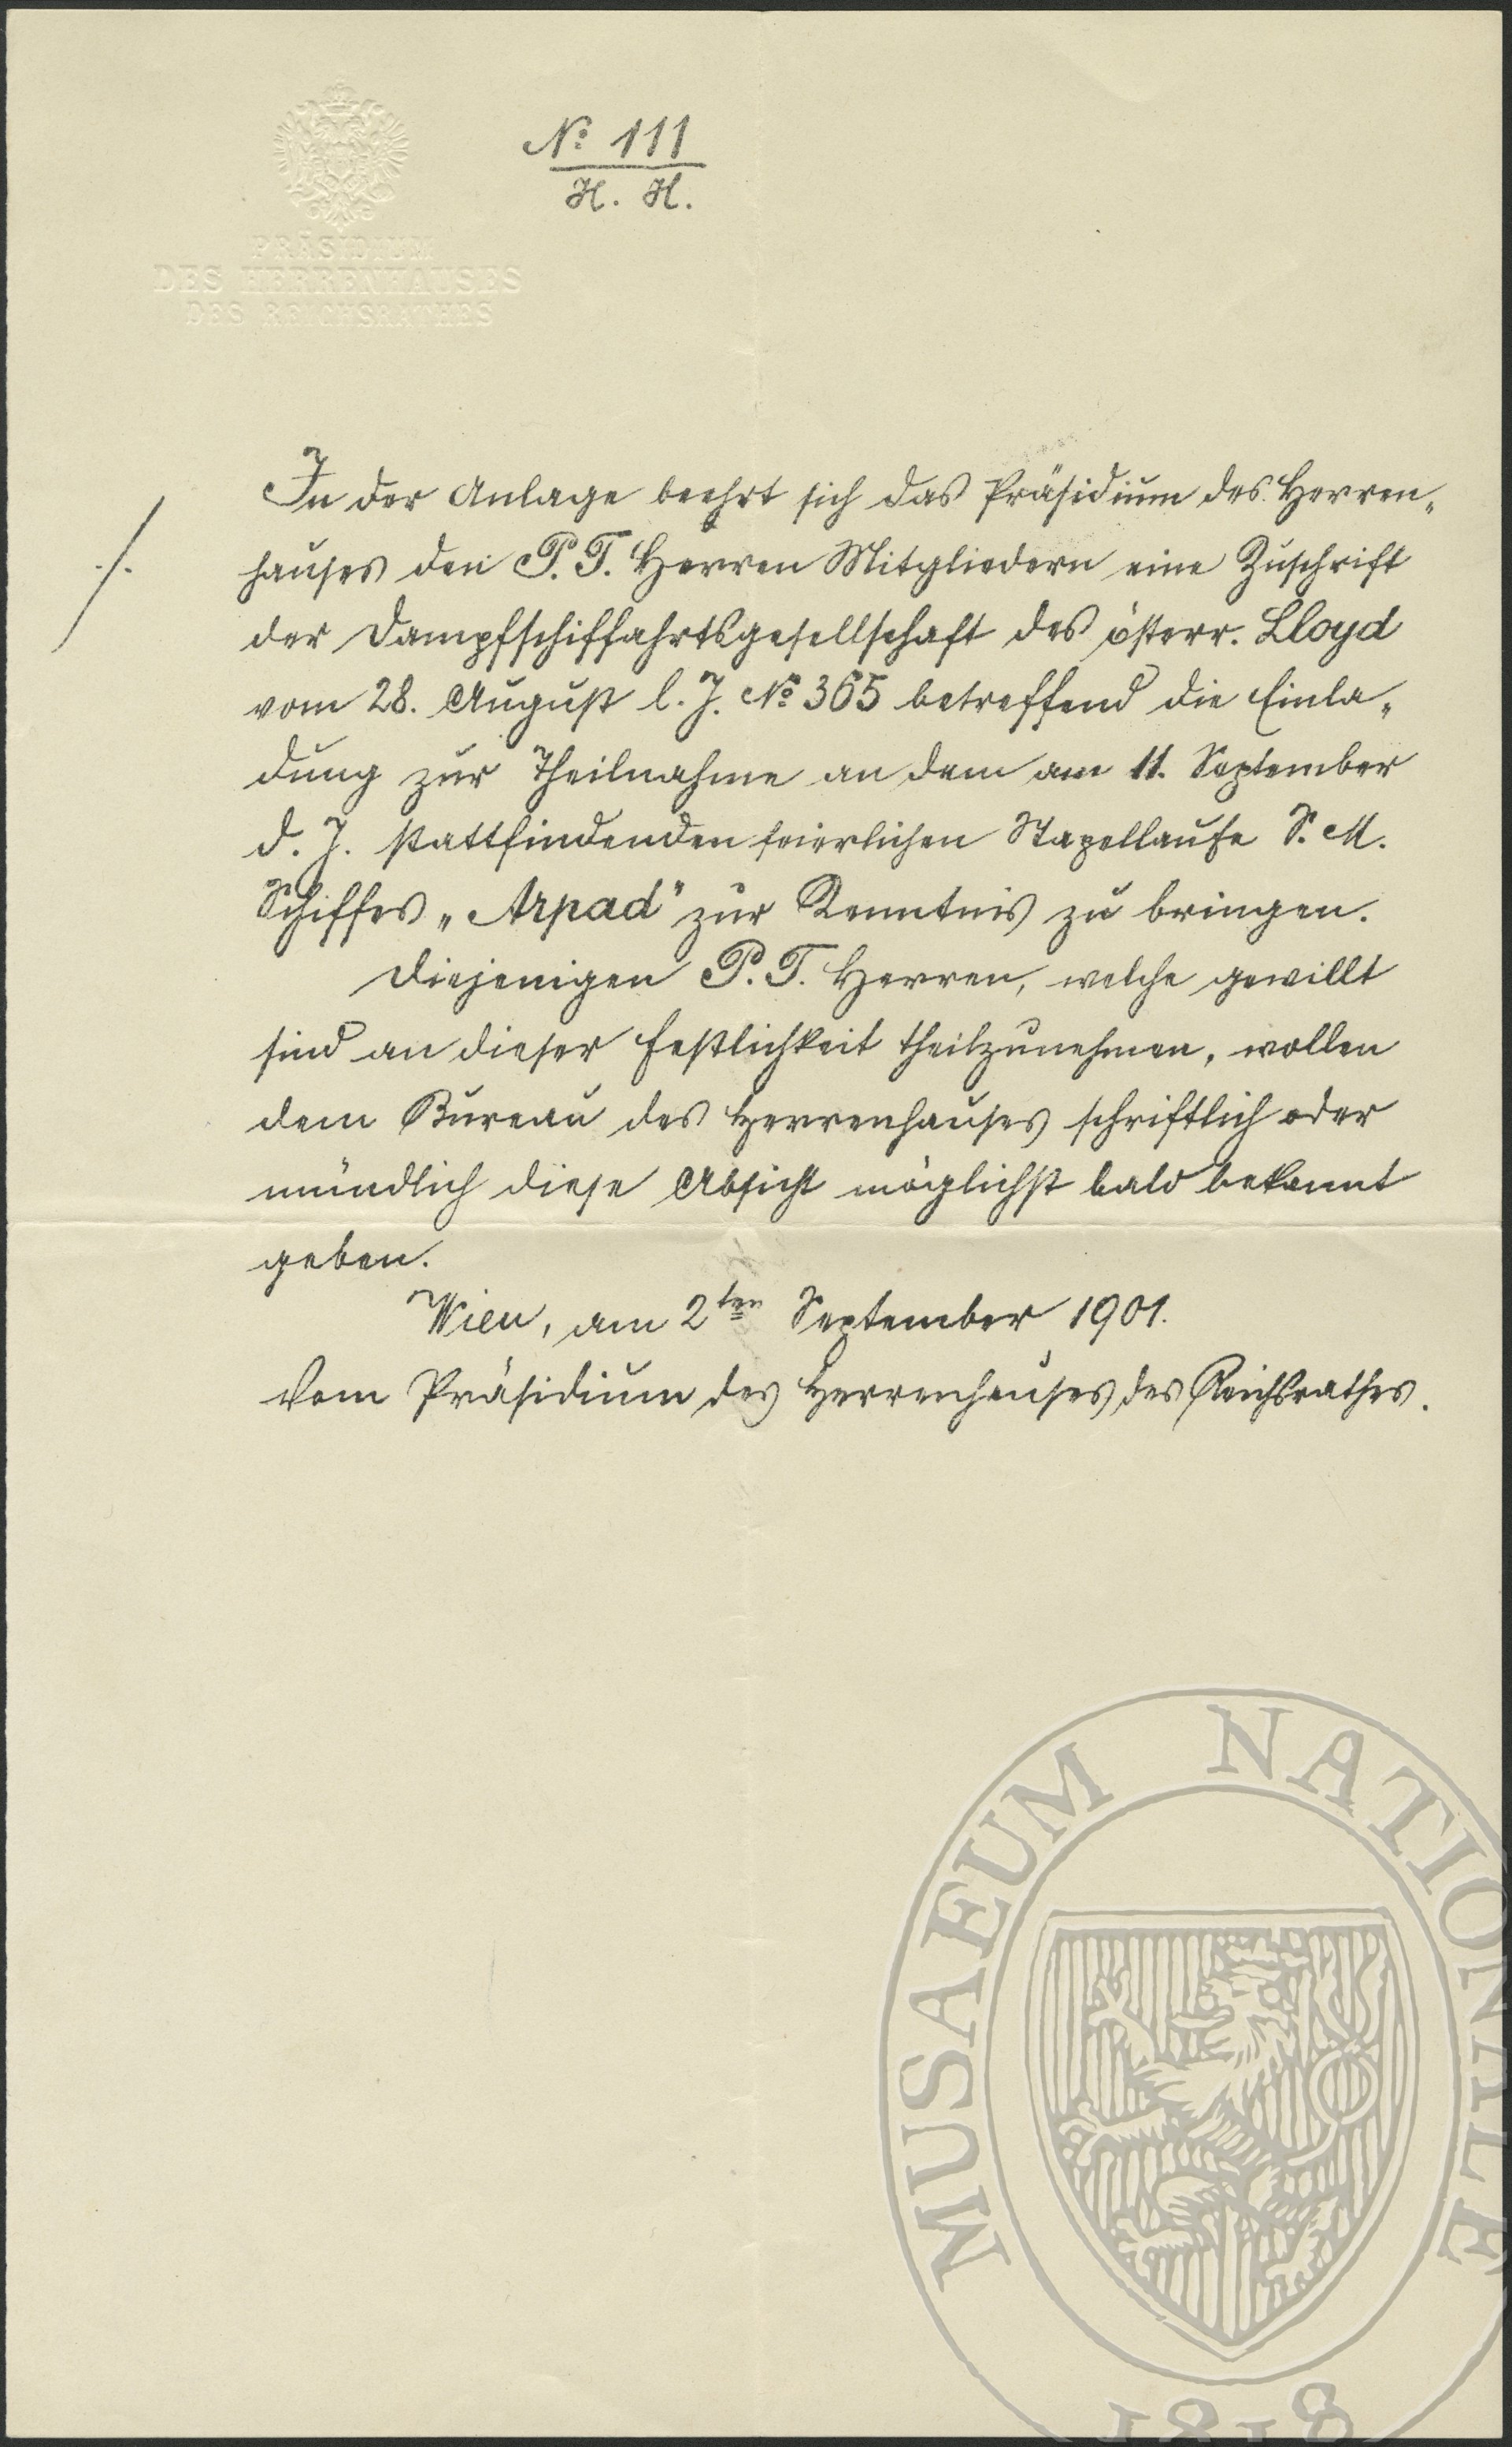 PRÄSIDIUM
DES HERRENHAUSES
DES REICHSRATHES
№ 111
H. H.
In der Anlage beehrt sich das Präsidium des Herren„
hauses den P. T. Herren Mitgliedern eine Zuschrift
der Dampfschiffahrtsgesellschaft des österr. Lloyd
vom 28. August l. J. № 365 betreffend die Einla„
dung zur Theilnahme an dem am 11. September
d. J. stattfindenden feierlichen Stapellaufe S. M.
Schiffes „Arpad" zur Kenntnis zu bringen.
Diejenigen P. T. Herren, welche gewillt
sind an dieser Festlichkeit theilzunehmen, wollen
dem Bureau des Herrenhauses schriftlich oder
mündlich diese Absicht möglichst bald bekannt
geben.
Wien, am 2ten September 1901.
Vom Präsidium des Herrenhauses des Reichsrathes.
./.
MUSAEUM NATIONALE
1818